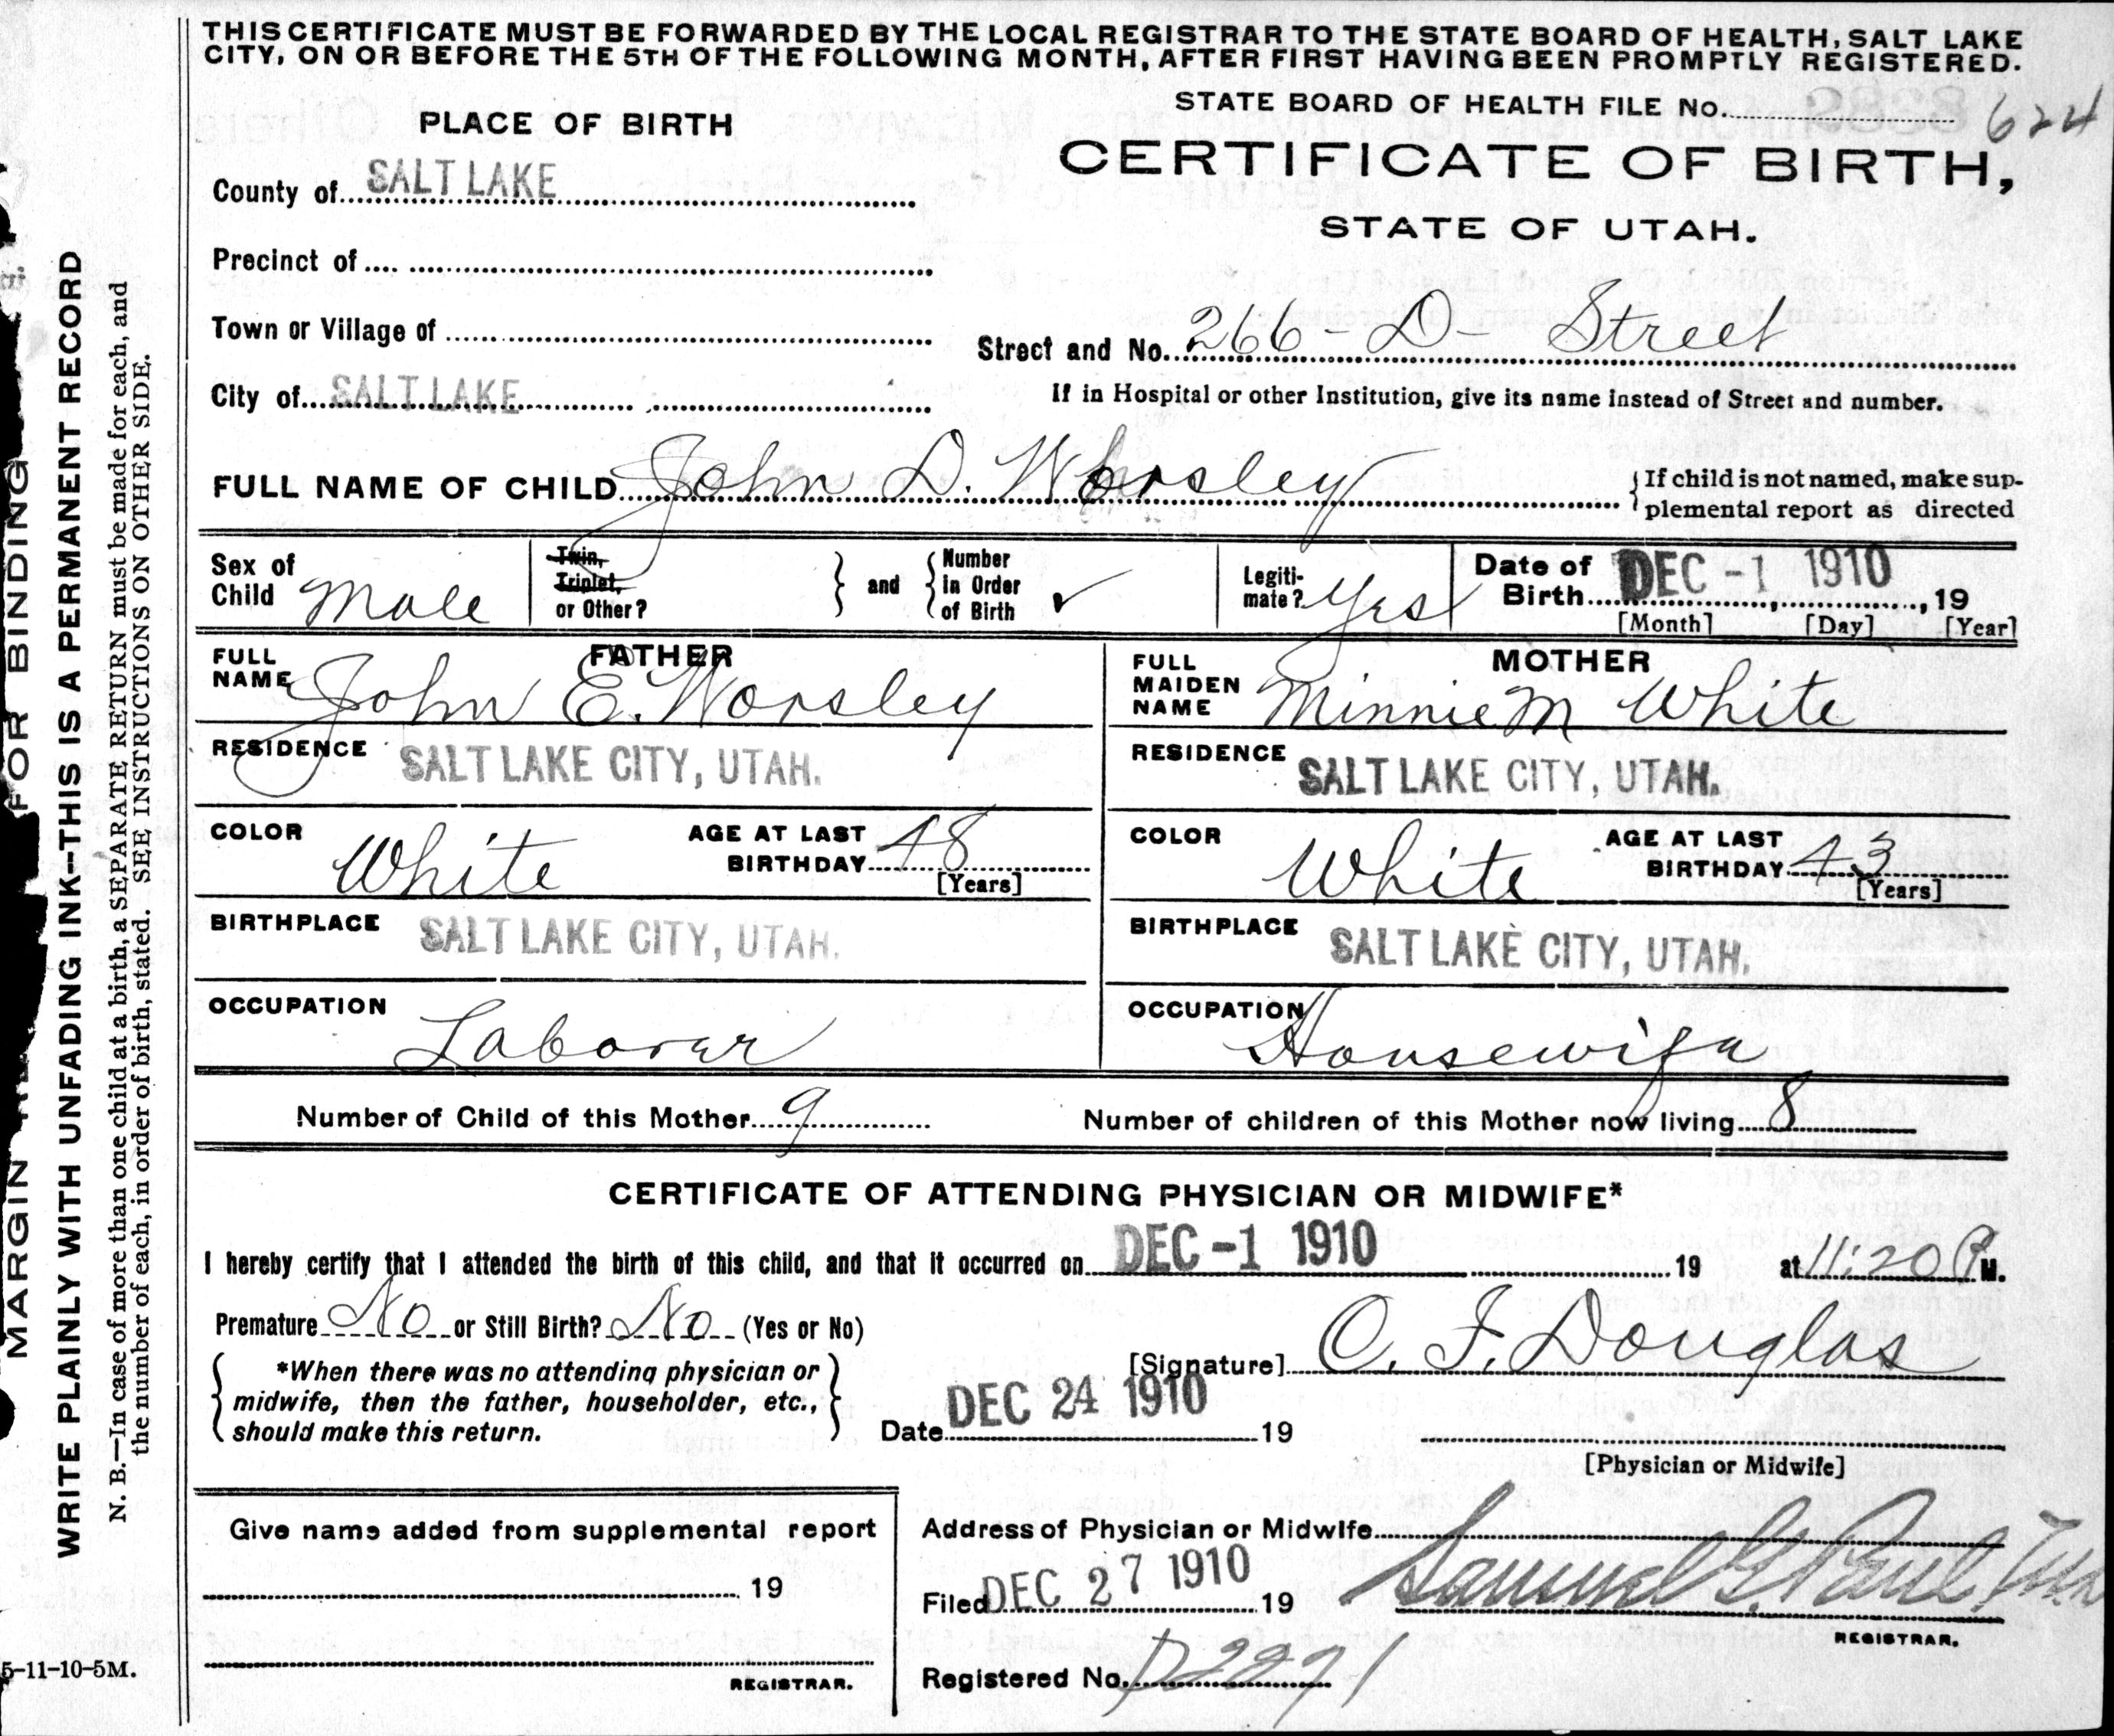 THIS CERTIFICATE MUST BE FORWARDED BY THE LOCAL REGISTRAR TO THE STATE BOARD OF HEALTH, SALT LAKE
CITY, ON OR BEFORE THE 5TH OF THE FOLLOWING MONTH, AFTER FIRST HAVING BEEN PROMPTLY REGISTERED.
STATE BOARD OF HEALTH FILE No. 624
PLACE OF BIRTH
CERTIFICATE OF BIRTH,
STATE OF UTAH.
County of SALT LAKE
Precinct of
Town or Village of
Street and No. 266 - D - Street
City of SALT LAKE
If in Hospital or other Institution, give its name instead of Street and number.
FULL NAME OF CHILD John D. Worsley
{If child is not named, make sup-
plemental report as directed
Sex of Child Male
Twin, Triplet, or Other?
} and { Number in Order of Birth ✓
Legiti-mate? Yes
Date of Birth DEC -1 1910, 19
[Month] [Day] [Year]
FATHER
FULL NAME John E. Worsley
MOTHER
FULL MAIDEN NAME Minnie M White
RESIDENCE SALT LAKE CITY, UTAH.
RESIDENCE SALT LAKE CITY, UTAH.
COLOR White AGE AT LAST BIRTHDAY 48 [Years]
COLOR White AGE AT LAST BIRTHDAY 43 [Years]
BIRTHPLACE SALT LAKE CITY, UTAH.
BIRTHPLACE SALT LAKE CITY, UTAH.
OCCUPATION Laborer
OCCUPATION Housewife
Number of Child of this Mother 9 Number of children of this Mother now living 8
CERTIFICATE OF ATTENDING PHYSICIAN OR MIDWIFE*
I hereby certify that I attended the birth of this child, and that it occurred on DEC -1 1910 19 at 11:20 P M.
Premature No or Still Birth? No (Yes or No)
{ *When there was no attending physician or }
midwife, then the father, householder, etc.,
should make this return.
[Signature] O. F. Douglas
Date DEC 24 1910 19
[Physician or Midwife]
Give name added from supplemental report
19
REGISTRAR.
Address of Physician or Midwife
Filed DEC 27 1910 19 Samuel G. Paul,
REGISTRAR.
Registered No. D2271
5-11-10-5M.
MARGIN FOR BINDING
WRITE PLAINLY WITH UNFADING INK--THIS IS A PERMANENT RECORD
N. B.—In case of more than one child at a birth, a SEPARATE RETURN must be made for each, and
the number of each, in order of birth, stated. SEE INSTRUCTIONS ON OTHER SIDE.